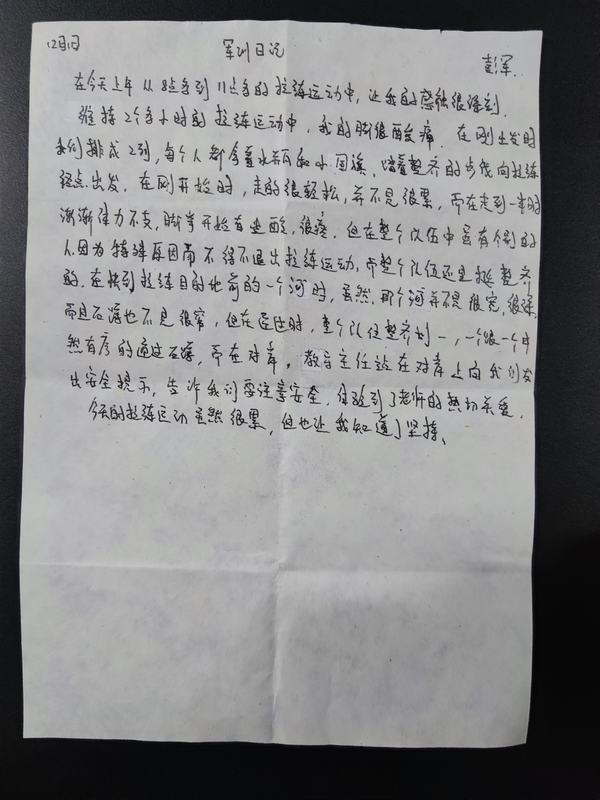 12月1日
军训日记
彭军
在今天上午从8点多到11点多的拉练运动中，让我的感触很深刻。
维持2个多小时的拉练运动中，我的脚很酸痛。在刚出发时
我们排成2列，每个人都拿着水瓶和小国旗，踏着整齐的步伐向拉练
终点出发。在刚开始时，走的很轻松，并不是很累，而在走到一半时
渐渐体力不支，脚等开始有些酸，很疼。但在整个队伍中虽有个别的
人因为特殊原因而不得不退出拉练运动，而整个队伍还是挺整齐
的。在快到拉练目的地前的一个河时，虽然，那个河并不是很宽，很深，
而且石墩也不是很窄，但在经过时，整个队伍整齐划一，一个跟一个井
然有序的通过石墩，而在对岸，教导主任站在对岸上向我们发
出安全提示，告诉我们要注意安全，体验到了老师的热切关爱。
今天的拉练运动虽然很累，但也让我知道了坚持。